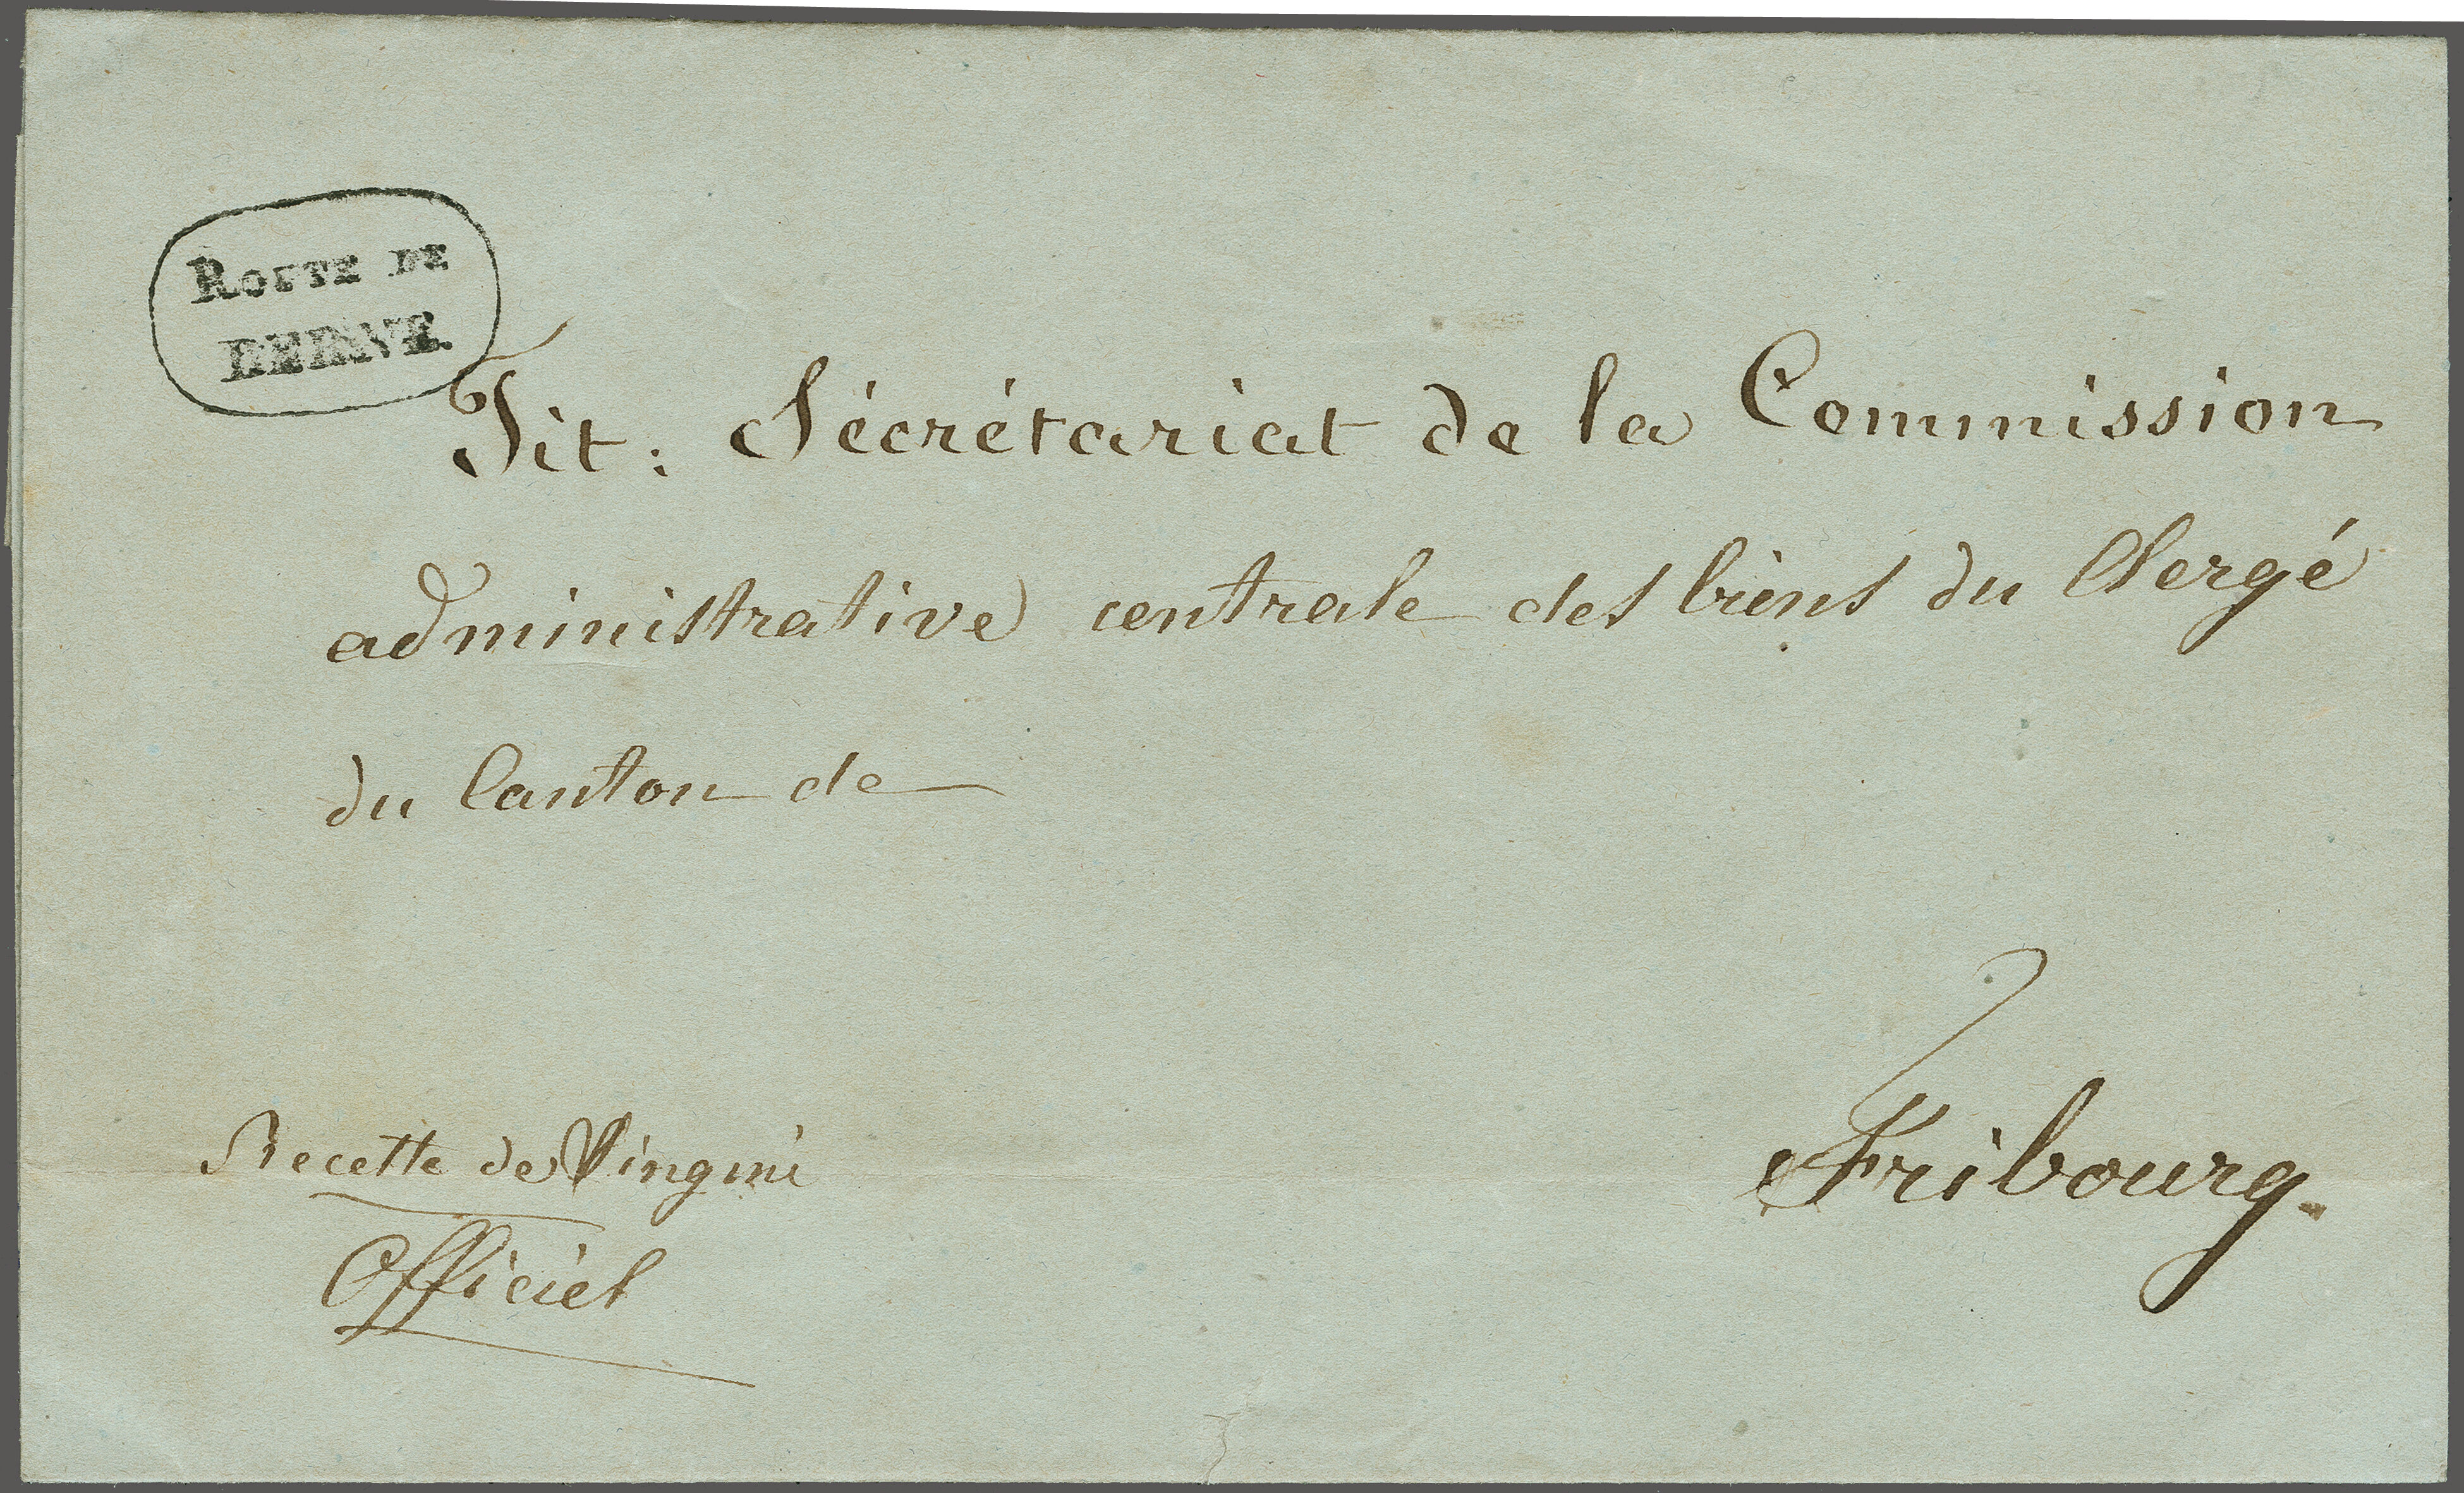 ROUTE DE
BERNE.
Tit: Sécrétariat de la Commission
administrative centrale des biens du Clergé
du Canton de
Fribourg.
Recette de
Officiel